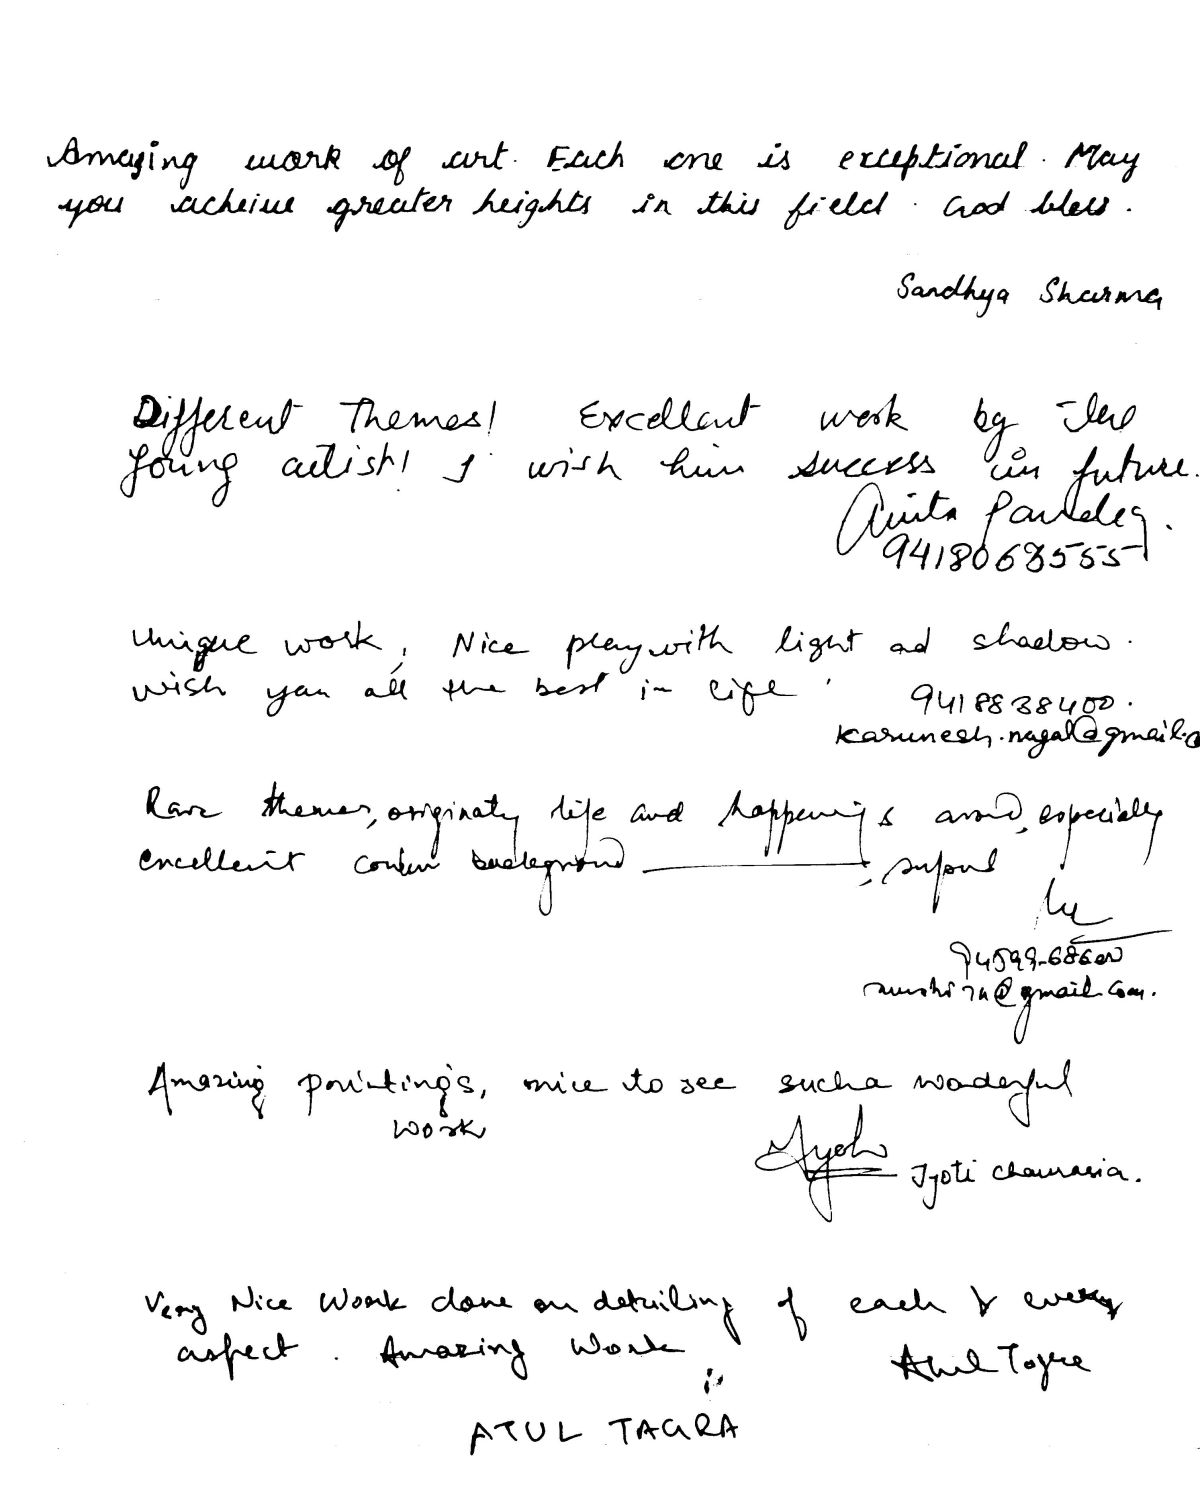 Amazing work of art. Each one is exceptional. May
you acheive greater heights in this field. God bless.
Sandhya Sharma
Different Themes! Excellent work by the
Young artist! I wish him success in future.
Anita Pandey.
9418068555
Unique work, Nice play with light ad shadow.
wish you all the best in life.
9418838400.
karunesh.nagal@gmail.c
Rare themes, originaty life and happenings around, especially
excellent background
@gmail.com.
Amazing paintings, nice to see such a wonderful
work
Jyoti
Jyoti Chaurasia.
Very Nice Work done on detailing of each & every
aspect. Amazing Work
Atul Tagra
ATUL TAGRA